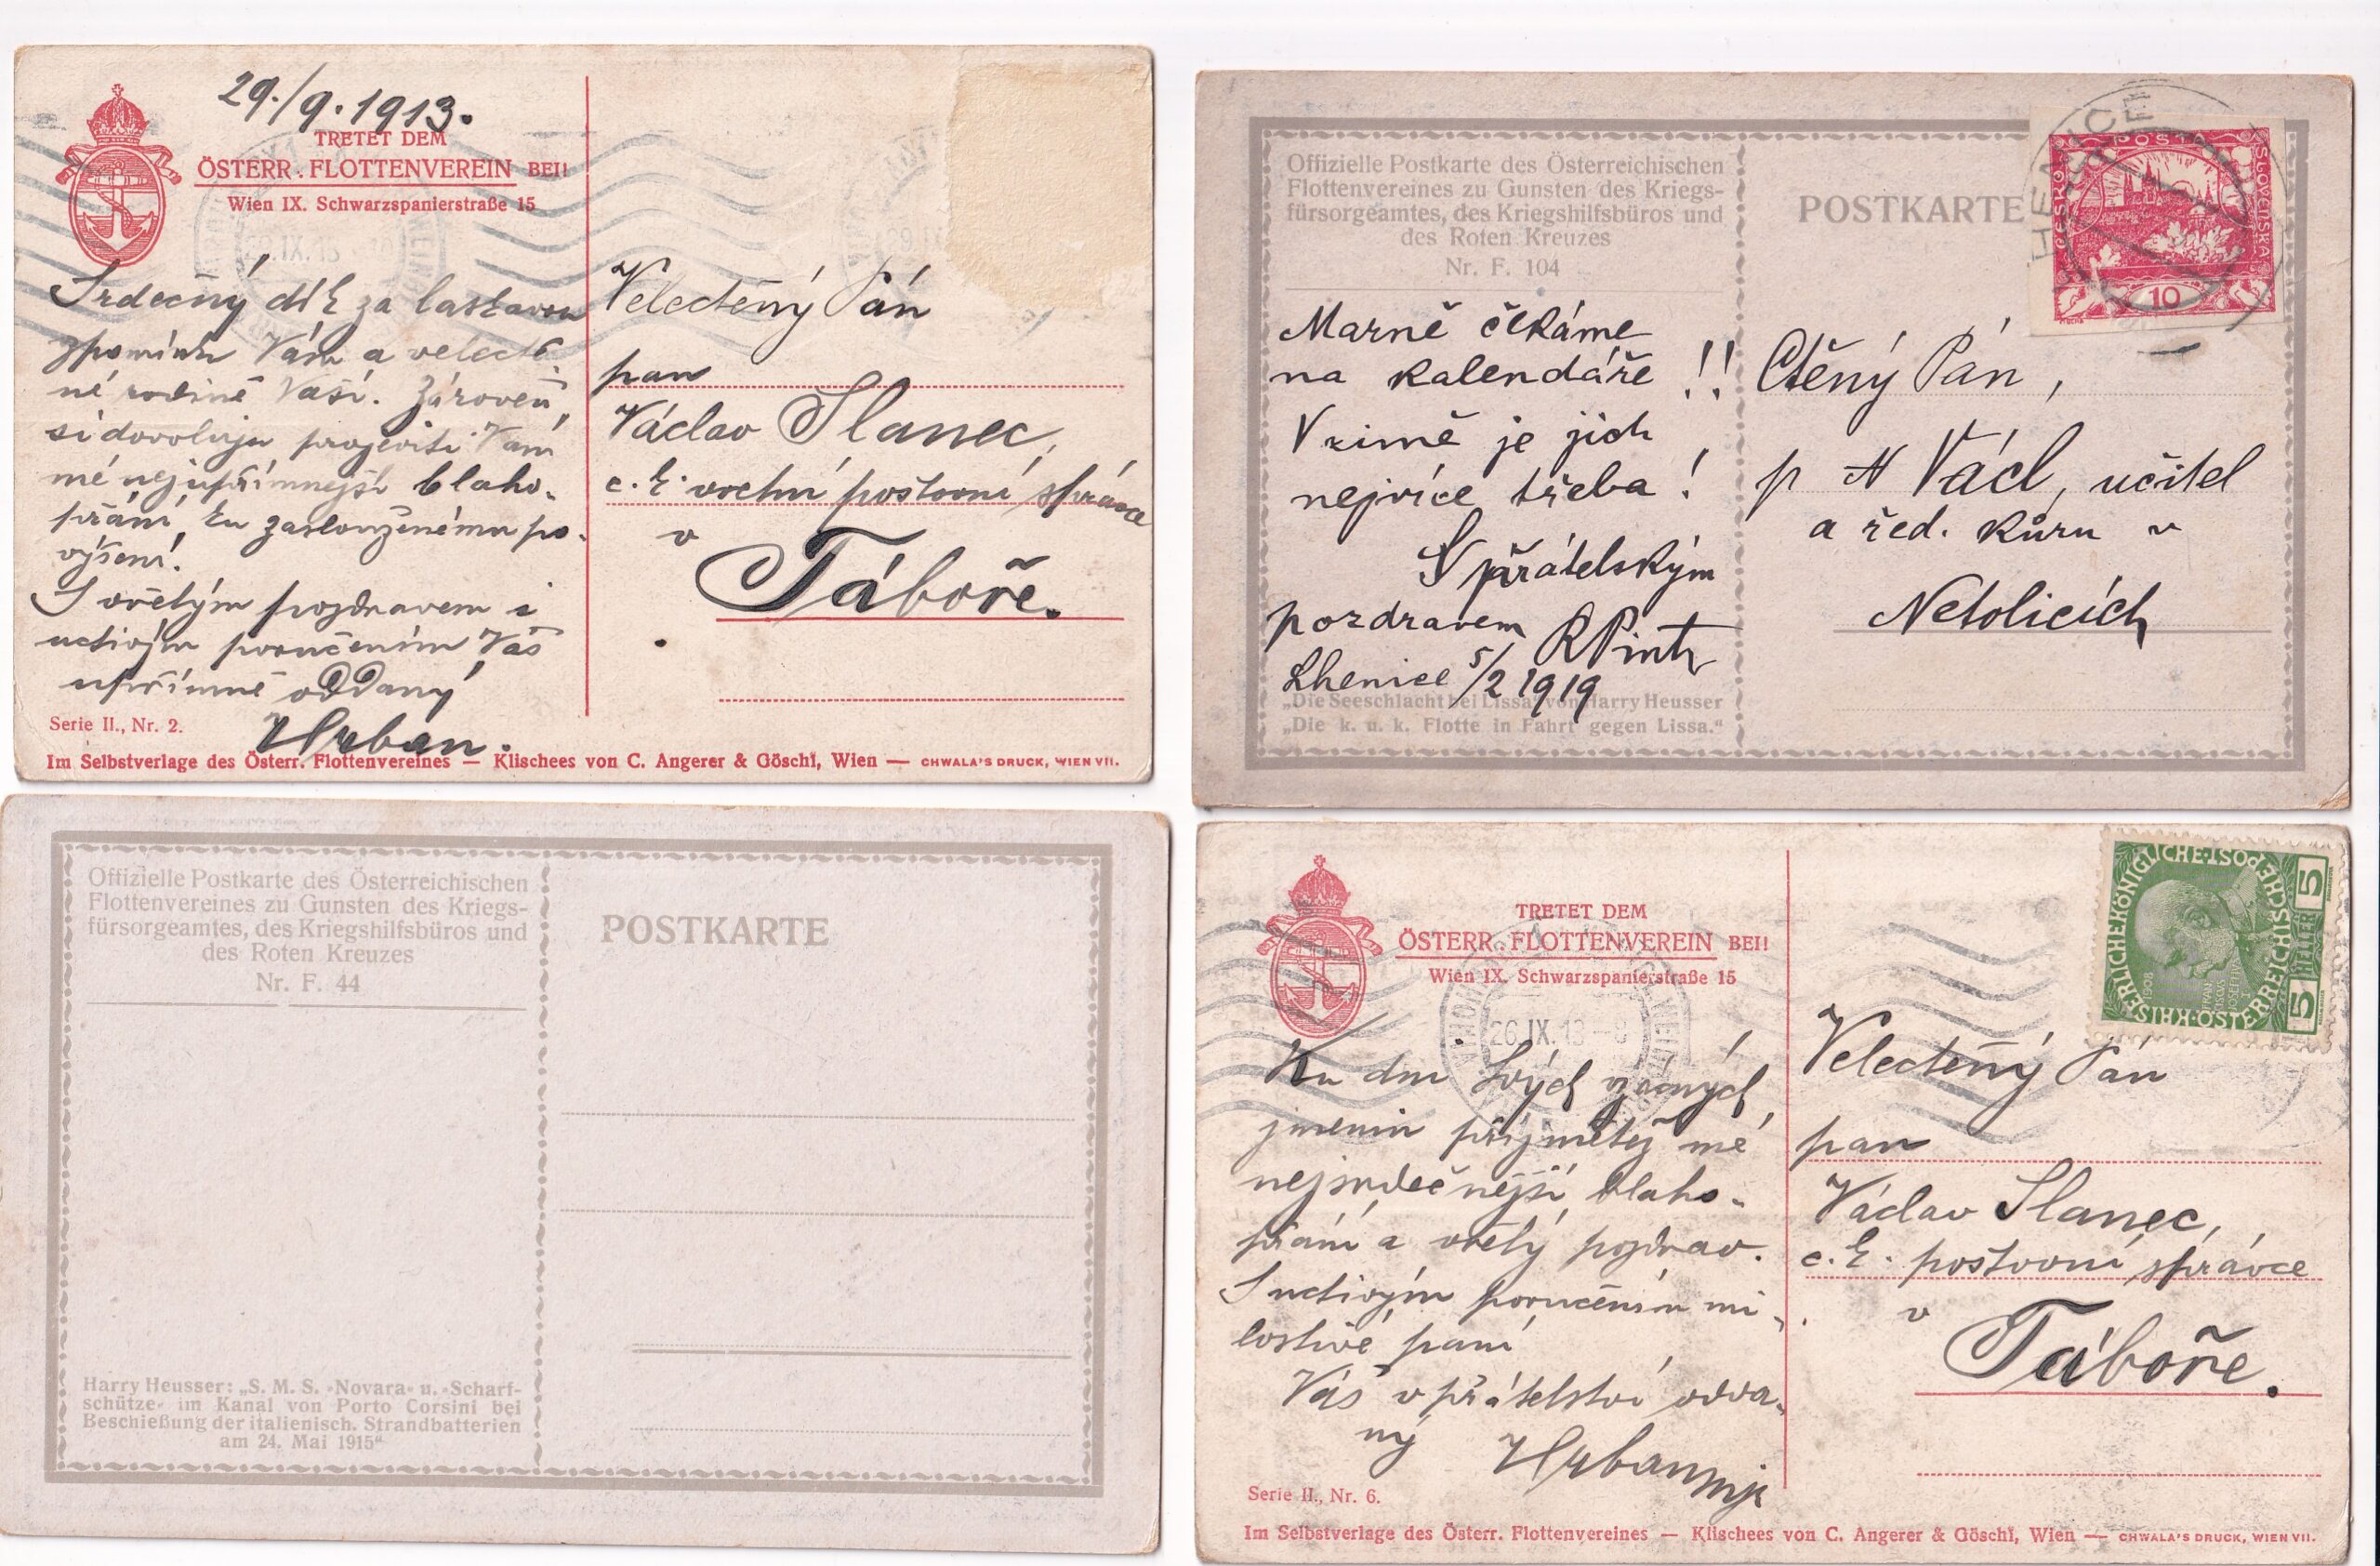 29./9. 1913.
TRETET DEM
ÖSTERR. FLOTTENVEREIN BEI!
Wien IX. Schwarzspanierstraße 15
Srdečný dík za laskavou
zpomínku Vám a velectě
né rodině Vaší. Zároveň
si dovoluji projeviti Vám
mé nejupřímnejší blaho-
přání, ku zaslouženému po-
výšení!
S vřelým pozdravem i
uctivým poručením Váš
upřímně oddaný
Urban.
Serie II., Nr. 2.
Velectěný Pán
pan
Václav Slanec,
c. k. vrchní poštovní správce
v
Táboře.
Im Selbstverlage des Österr. Flottenvereines — Klischees von C. Angerer & Göschl, Wien — CHWALA'S DRUCK, WIEN VII.
Offizielle Postkarte des Österreichischen
Flottenvereines zu Gunsten des Kriegs-
fürsorgeamtes, des Kriegshilfsbüros und
des Roten Kreuzes
Nr. F. 104
Marně čekáme
na kalendáře !!
V zimě je jich
nejvíce třeba!
S přátelským
pozdravem
Lhenice 5/2 1919
„Die Seeschlacht bei Lissa" von Harry Heusser
„Die k. u. k. Flotte in Fahrt gegen Lissa."
POSTKARTE
POŠTA
ČESKO
SLOVENSKÁ
10
Ctěný Pán,
p Václ, učitel
a řed. kůru v
Netolicích
Offizielle Postkarte des Österreichischen
Flottenvereines zu Gunsten des Kriegs-
fürsorgeamtes, des Kriegshilfsbüros und
des Roten Kreuzes
Nr. F. 44
POSTKARTE
Harry Heusser: „S. M. S. »Novara« u. »Scharf-
schütze« im Kanal von Porto Corsini bei
Beschießung der italienisch. Strandbatterien
am 24. Mai 1915"
TRETET DEM
ÖSTERR. FLOTTENVEREIN BEI!
Wien IX. Schwarzspanierstraße 15
26.IX.13
Ku dni Svých vzácných
jmenin přijmětež mé
nejsrdečnější blaho-
přání a vřelý pozdrav.
S uctivým poručením mi-
lostivé paní
Váš v přátelství odda-
ný Urban
Serie II., Nr. 6.
KAISERLICHE KÖNIGLICHE ÖSTERREICHISCHE POST
5 HELLER 5
1908
Velectěný Pán
pan
Václav Slanec,
c. k. poštovní správce
v
Táboře.
Im Selbstverlage des Österr. Flottenvereines — Klischees von C. Angerer & Göschl, Wien — CHWALA'S DRUCK, WIEN VII.